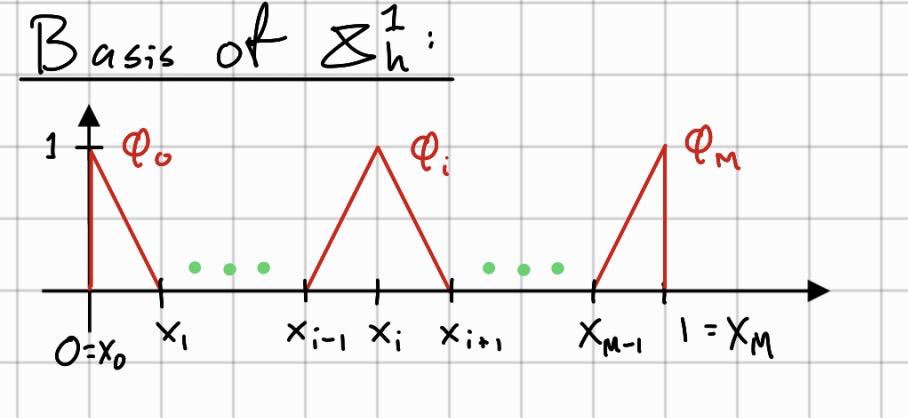 Basis of X_h^1:
1 φ_0 φ_i φ_M
0=x_0 x_1 x_{i-1} x_i x_{i+1} x_{M-1} 1=x_M